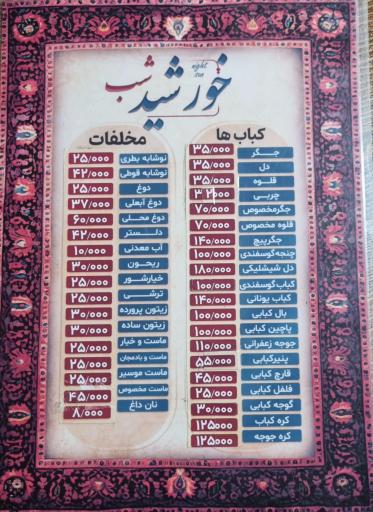 night
sun
خورشید شب
کباب ها
جگر ۳۵/۰۰۰
دل ۳۵/۰۰۰
قلوه ۳۵/۰۰۰
چربی
جگرمخصوص ۷۰/۰۰۰
قلوه مخصوص ۷۰/۰۰۰
جگرپیچ ۱۴۰/۰۰۰
چنجه گوسفندی ۱۰۰/۰۰۰
دل شیشلیکی ۱۸۰/۰۰۰
کباب گوسفندی ۱۰۰/۰۰۰
کباب یونانی ۱۴۰/۰۰۰
بال کبابی ۱۰۰/۰۰۰
پاچین کبابی ۱۰۰/۰۰۰
جوجه زعفرانی ۱۱۰/۰۰۰
پنیرکبابی ۵۵/۰۰۰
قارچ کبابی ۴۵/۰۰۰
فلفل کبابی ۲۵/۰۰۰
گوجه کبابی ۳۰/۰۰۰
کره کباب ۱۲۵۰۰۰
کره جوجه ۱۲۵۰۰۰
مخلفات
نوشابه بطری ۲۵/۰۰۰
نوشابه قوطی ۴۲/۰۰۰
دوغ ۲۵/۰۰۰
دوغ آبعلی ۳۷/۰۰۰
دوغ محلی ۶۰/۰۰۰
دلستر ۴۲/۰۰۰
آب معدنی ۱۰/۰۰۰
ریحون ۳۰/۰۰۰
خیارشور ۲۵/۰۰۰
ترشی ۲۵/۰۰۰
زیتون پرورده ۳۰/۰۰۰
زیتون ساده ۳۰/۰۰۰
ماست و خیار ۲۵/۰۰۰
ماست و بادمجان ۲۵/۰۰۰
ماست موسیر ۲۵/۰۰۰
ماست مخصوص ۴۵/۰۰۰
نان داغ ۸/۰۰۰